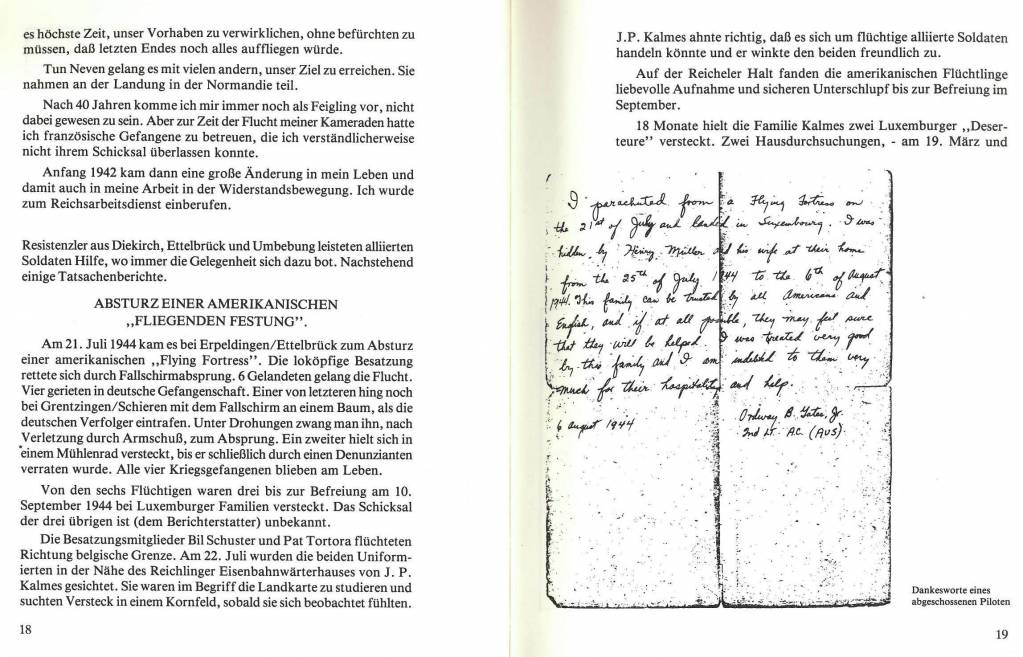 es höchste Zeit, unser Vorhaben zu verwirklichen, ohne befürchten zu
müssen, daß letzten Endes noch alles auffliegen würde.
Tun Neven gelang es mit vielen andern, unser Ziel zu erreichen. Sie
nahmen an der Landung in der Normandie teil.
Nach 40 Jahren komme ich mir immer noch als Feigling vor, nicht
dabei gewesen zu sein. Aber zur Zeit der Flucht meiner Kameraden hatte
ich französische Gefangene zu betreuen, die ich verständlicherweise
nicht ihrem Schicksal überlassen konnte.
Anfang 1942 kam dann eine große Änderung in mein Leben und
damit auch in meine Arbeit in der Widerstandsbewegung. Ich wurde
zum Reichsarbeitsdienst einberufen.
Resistenzler aus Diekirch, Ettelbrück und Umbebung leisteten alliierten
Soldaten Hilfe, wo immer die Gelegenheit sich dazu bot. Nachstehend
einige Tatsachenberichte.
ABSTURZ EINER AMERIKANISCHEN
,,FLIEGENDEN FESTUNG".
Am 21. Juli 1944 kam es bei Erpeldingen/Ettelbrück zum Absturz
einer amerikanischen ,,Flying Fortress". Die loköpfige Besatzung
rettete sich durch Fallschirmabsprung. 6 Gelandeten gelang die Flucht.
Vier gerieten in deutsche Gefangenschaft. Einer von letzteren hing noch
bei Grentzingen/Schieren mit dem Fallschirm an einem Baum, als die
deutschen Verfolger eintrafen. Unter Drohungen zwang man ihn, nach
Verletzung durch Armschuß, zum Absprung. Ein zweiter hielt sich in
einem Mühlenrad versteckt, bis er schließlich durch einen Denunzianten
verraten wurde. Alle vier Kriegsgefangenen blieben am Leben.
Von den sechs Flüchtigen waren drei bis zur Befreiung am 10.
September 1944 bei Luxemburger Familien versteckt. Das Schicksal
der drei übrigen ist (dem Berichterstatter) unbekannt.
Die Besatzungsmitglieder Bil Schuster und Pat Tortora flüchteten
Richtung belgische Grenze. Am 22. Juli wurden die beiden Uniform-
ierten in der Nähe des Reichlinger Eisenbahnwärterhauses von J. P.
Kalmes gesichtet. Sie waren im Begriff die Landkarte zu studieren und
suchten Versteck in einem Kornfeld, sobald sie sich beobachtet fühlten.
18
J.P. Kalmes ahnte richtig, daß es sich um flüchtige alliierte Soldaten
handeln könnte und er winkte den beiden freundlich zu.
Auf der Reicheler Halt fanden die amerikanischen Flüchtlinge
liebevolle Aufnahme und sicheren Unterschlupf bis zur Befreiung im
September.
18 Monate hielt die Familie Kalmes zwei Luxemburger ,,Deser-
teure" versteckt. Zwei Hausdurchsuchungen, - am 19. März und
I parachuted from a Flying Fortress on
the 21st of July and landed in Luxembourg. I was
hidden by Henry Müller and his wife at their home
from the 25th of July 1944 to the 6th of August
1944. This family can be trusted by all Americans and
English, and if at all possible, they may feel sure
that they will be helped. I was treated very good
by this family and I am indebted to them very
much for their hospitality and help.
6 August 1944
Ordway B. Gates, Jr.
2nd Lt. AC. (AUS)
Dankesworte eines
abgeschossenen Piloten
19